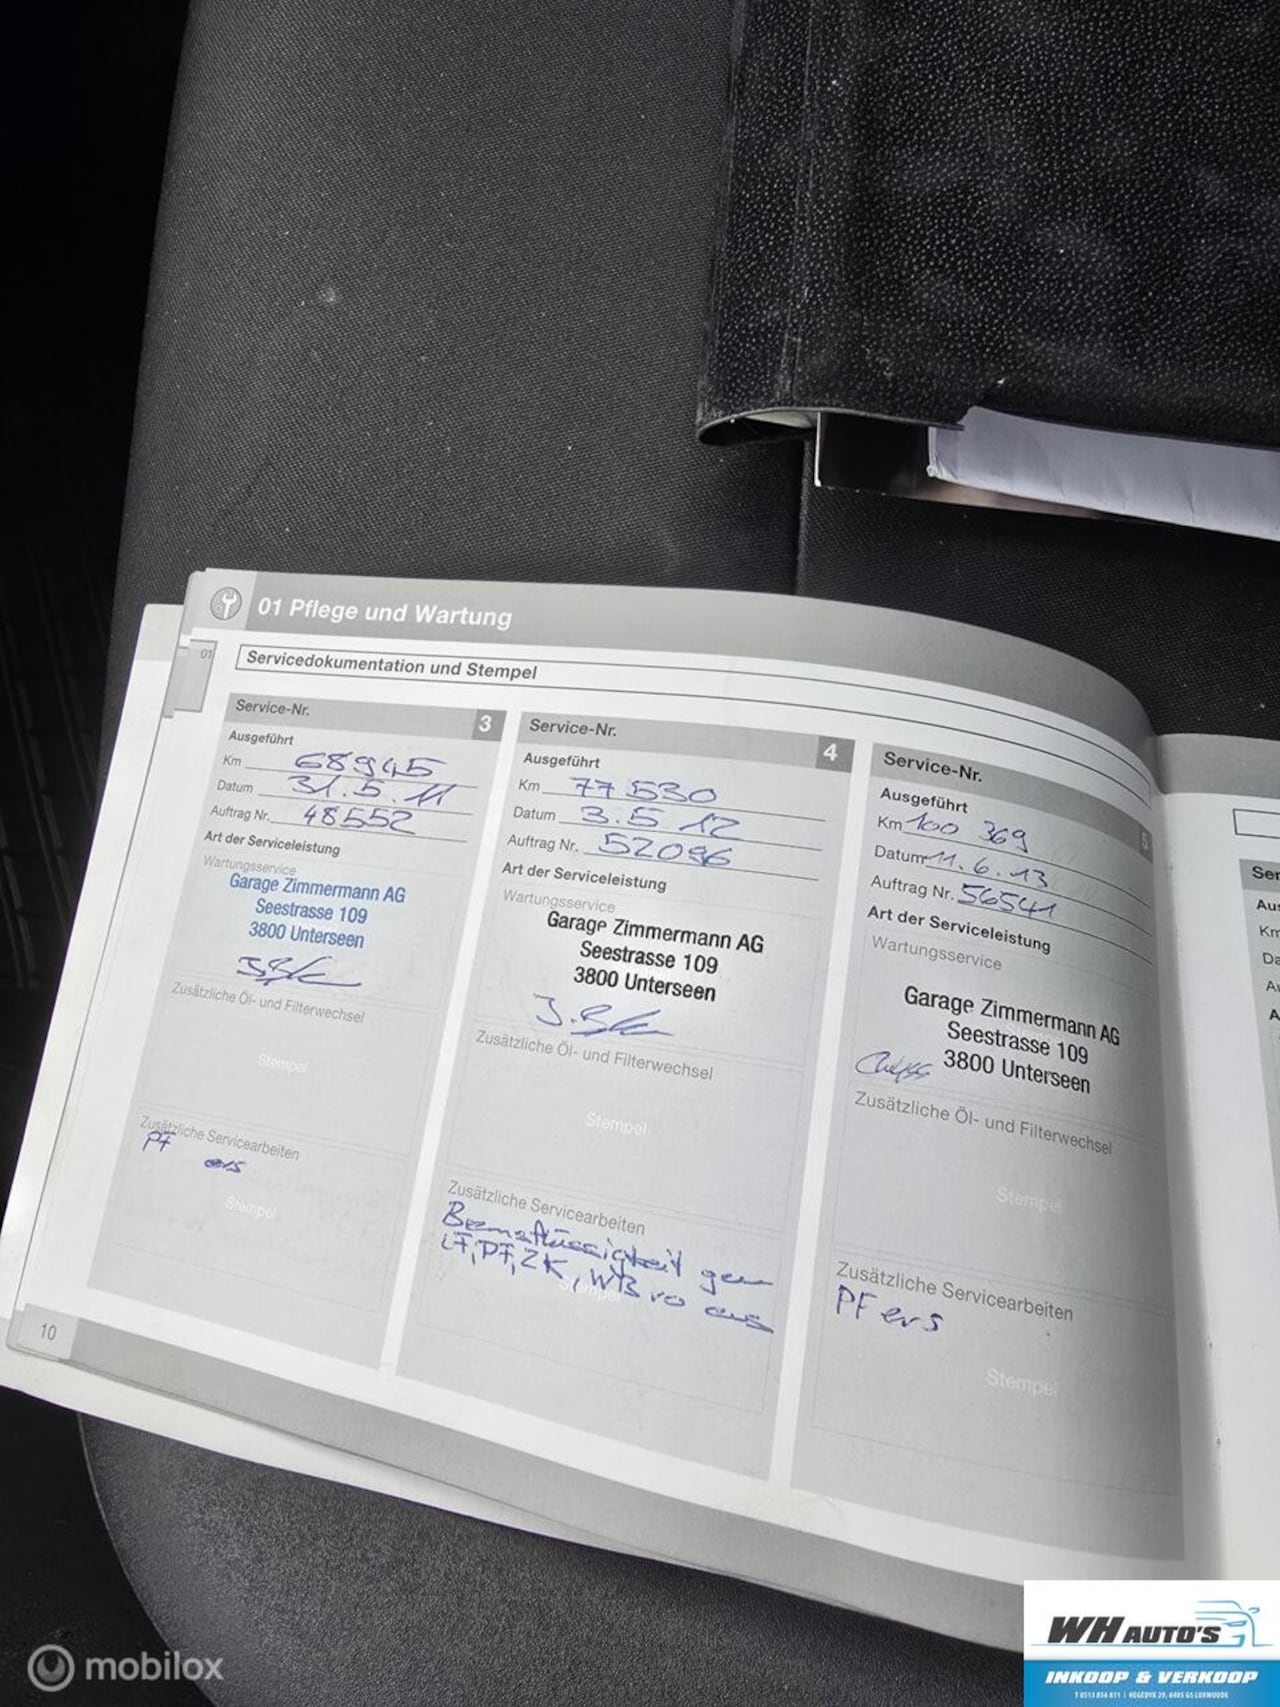 01 Pflege und Wartung
01
Servicedokumentation und Stempel
Service-Nr. 3
Ausgeführt
Km 68945
Datum 31.5.11
Auftrag Nr. 48552
Art der Serviceleistung
Wartungsservice
Garage Zimmermann AG
Seestrasse 109
3800 Unterseen
Zusätzliche Öl- und Filterwechsel
Stempel
Zusätzliche Servicearbeiten
PF ers
Stempel
10
Service-Nr. 4
Ausgeführt
Km 77 530
Datum 3.5 12
Auftrag Nr. 52096
Art der Serviceleistung
Wartungsservice
Garage Zimmermann AG
Seestrasse 109
3800 Unterseen
Zusätzliche Öl- und Filterwechsel
Stempel
Zusätzliche Servicearbeiten
Bremsflüssigkeit gew
LF, PF, ZK, WB vo
Stempel
Service-Nr. 5
Ausgeführt
Km 100 369
Datum 11.6.13
Auftrag Nr. 56541
Art der Serviceleistung
Wartungsservice
Garage Zimmermann AG
Seestrasse 109
3800 Unterseen
Zusätzliche Öl- und Filterwechsel
Stempel
Zusätzliche Servicearbeiten
PF ers
Stempel
Ser
Aus
Km
Da
Au
A
mobilox
WH AUTO'S
INKOOP & VERKOOP
T 0513 856 811 | HEGEDYK 29, 8405 GS LUXWOUDE